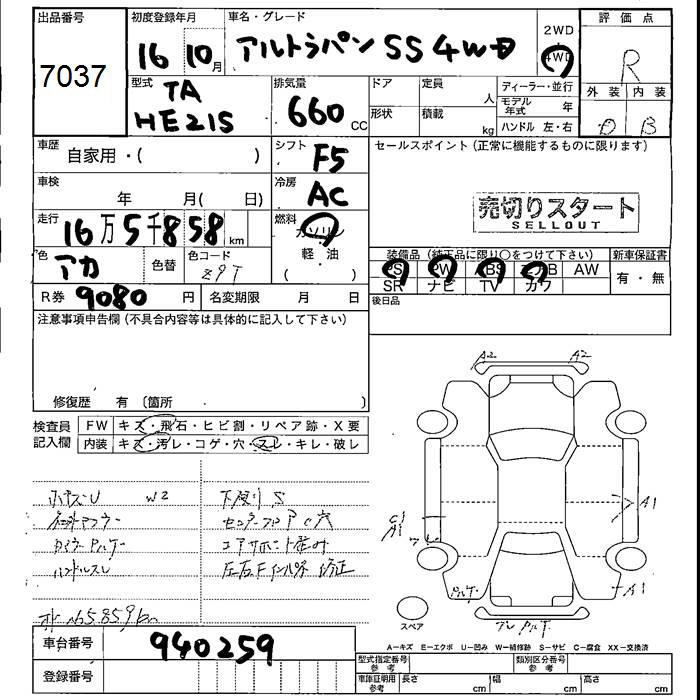 出品番号
7037
初度登録年月
16 10月
車名・グレード
アルトラパン SS 4WD
2WD
4WD
評価点
R
外装 内装
D B
型式
TA
HE21S
排気量
660 CC
ドア
定員
人
形状
積載
kg
ディーラー・並行
モデル年式 年
ハンドル 左・右
車歴
自家用・( )
シフト
F5
セールスポイント (正常に機能するものに限ります)
売切りスタート
SELLOUT
車検
年 月( 日)
冷房
AC
走行
16万5千858km
燃料
ガソリン
軽・油
色
アカ
色替
色コード
Z9T
装備品 (純正品に限り○をつけて下さい)
PS PW ABS エアB AW
SR ナビ TV カワ
新車保証書
有・無
R券 9080円
名変期限 月 日
後日品
注意事項申告欄 (不具合内容等は具体的に記入して下さい)
修復歴 有 〔箇所 〕
検査員記入欄
FW キズ・飛石・ヒビ割・リペア跡・X要
内装 キズ・汚レ・コゲ・穴・スレ・キレ・破レ
W2
下廻りS
ハンドルスレ
A2 A2
A1
A1
A1
スペア
A-キズ E-エクボ U-凹み W-補修跡 S-サビ C-腐食 XX-交換済
車台番号
940259
登録番号
型式指定番号 参考
類別区分番号 参考
車庫証明用 参考
長さ cm
幅 cm
高さ cm